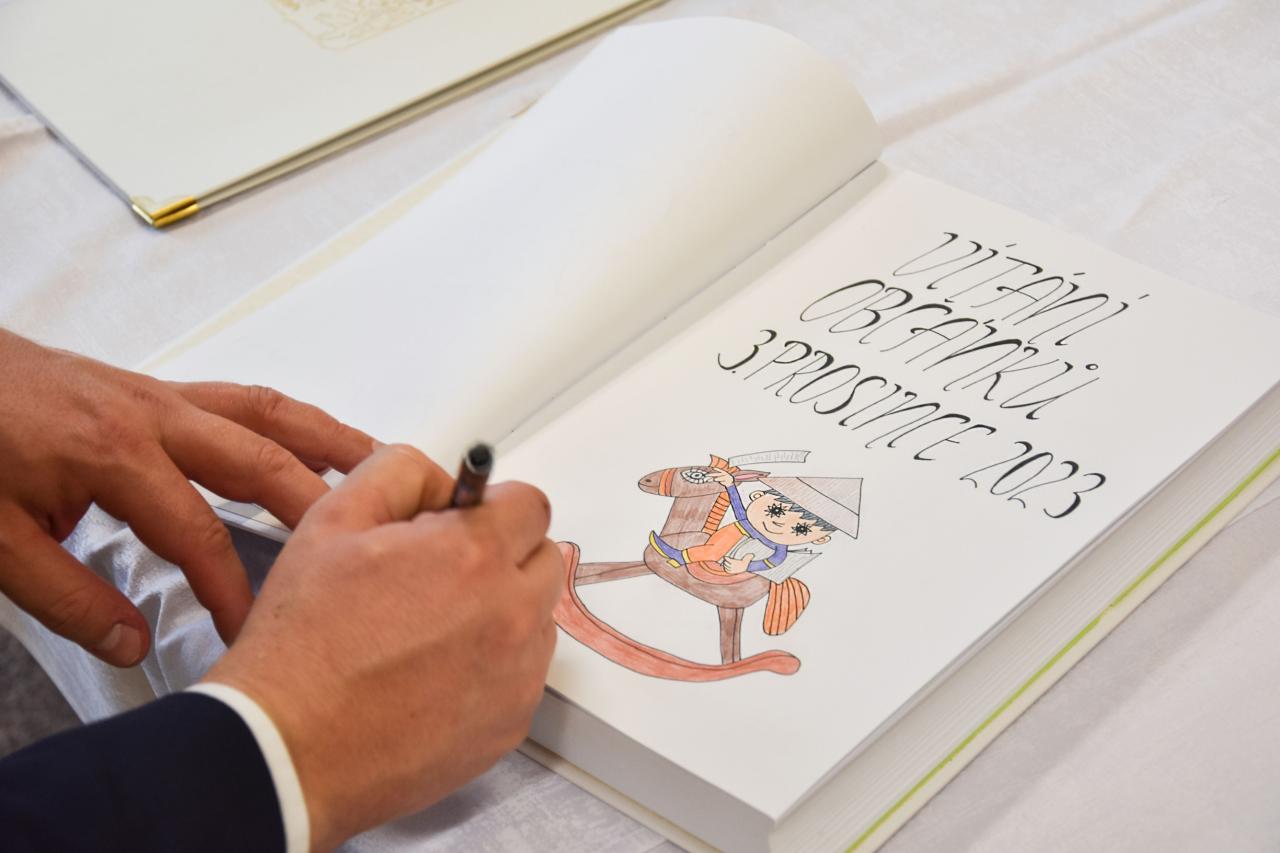 VÍTÁNÍ
OBČÁNKŮ
3. PROSINCE 2023